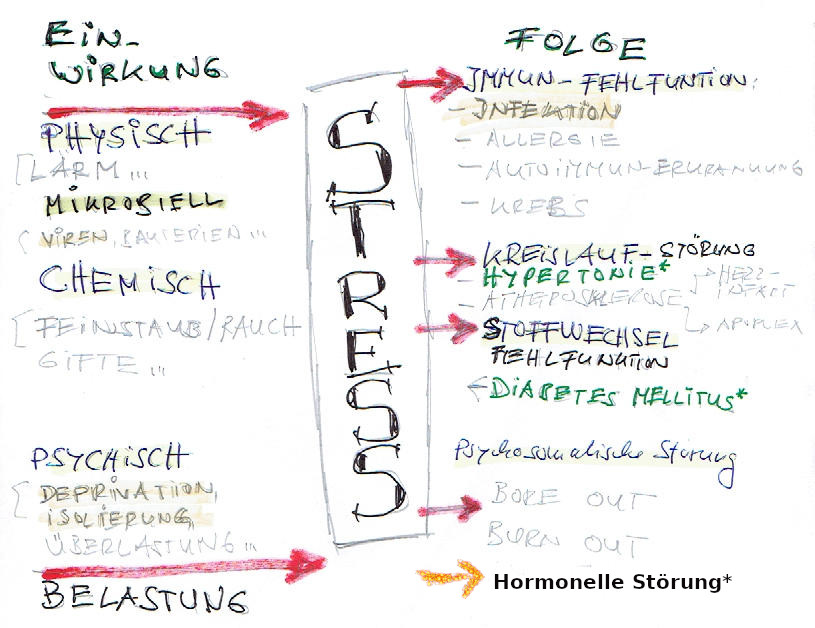 EiN-
WIRKUNG
PHYSISCH
LÄRM ...
MIKROBIELL
VIREN, BAKTERIEN ...
CHEMISCH
FEINSTAUB/RAUCH
GIFTE ...
PSYCHISCH
DEPRIVATIION,
ISOLIERUNG,
ÜBERLASTUNG ...
BELASTUNG
STRESS
FOLGE
IMMUN-FEHLFUNTION:
- INFEKTION
- ALLERGIE
- AUTOIMMUN-ERKRANKUNG
- KREBS
KREISLAUF-STÖRUNG
- HYPERTONIE*
- ATHEROSKLEROSE
HERZ-
INFARKT
APOPLEX
STOFFWECHSEL
FEHLFUNKTION
DIABETES MELLITUS*
Psychosomatische Störung
BORE OUT
BURN OUT
Hormonelle Störung*